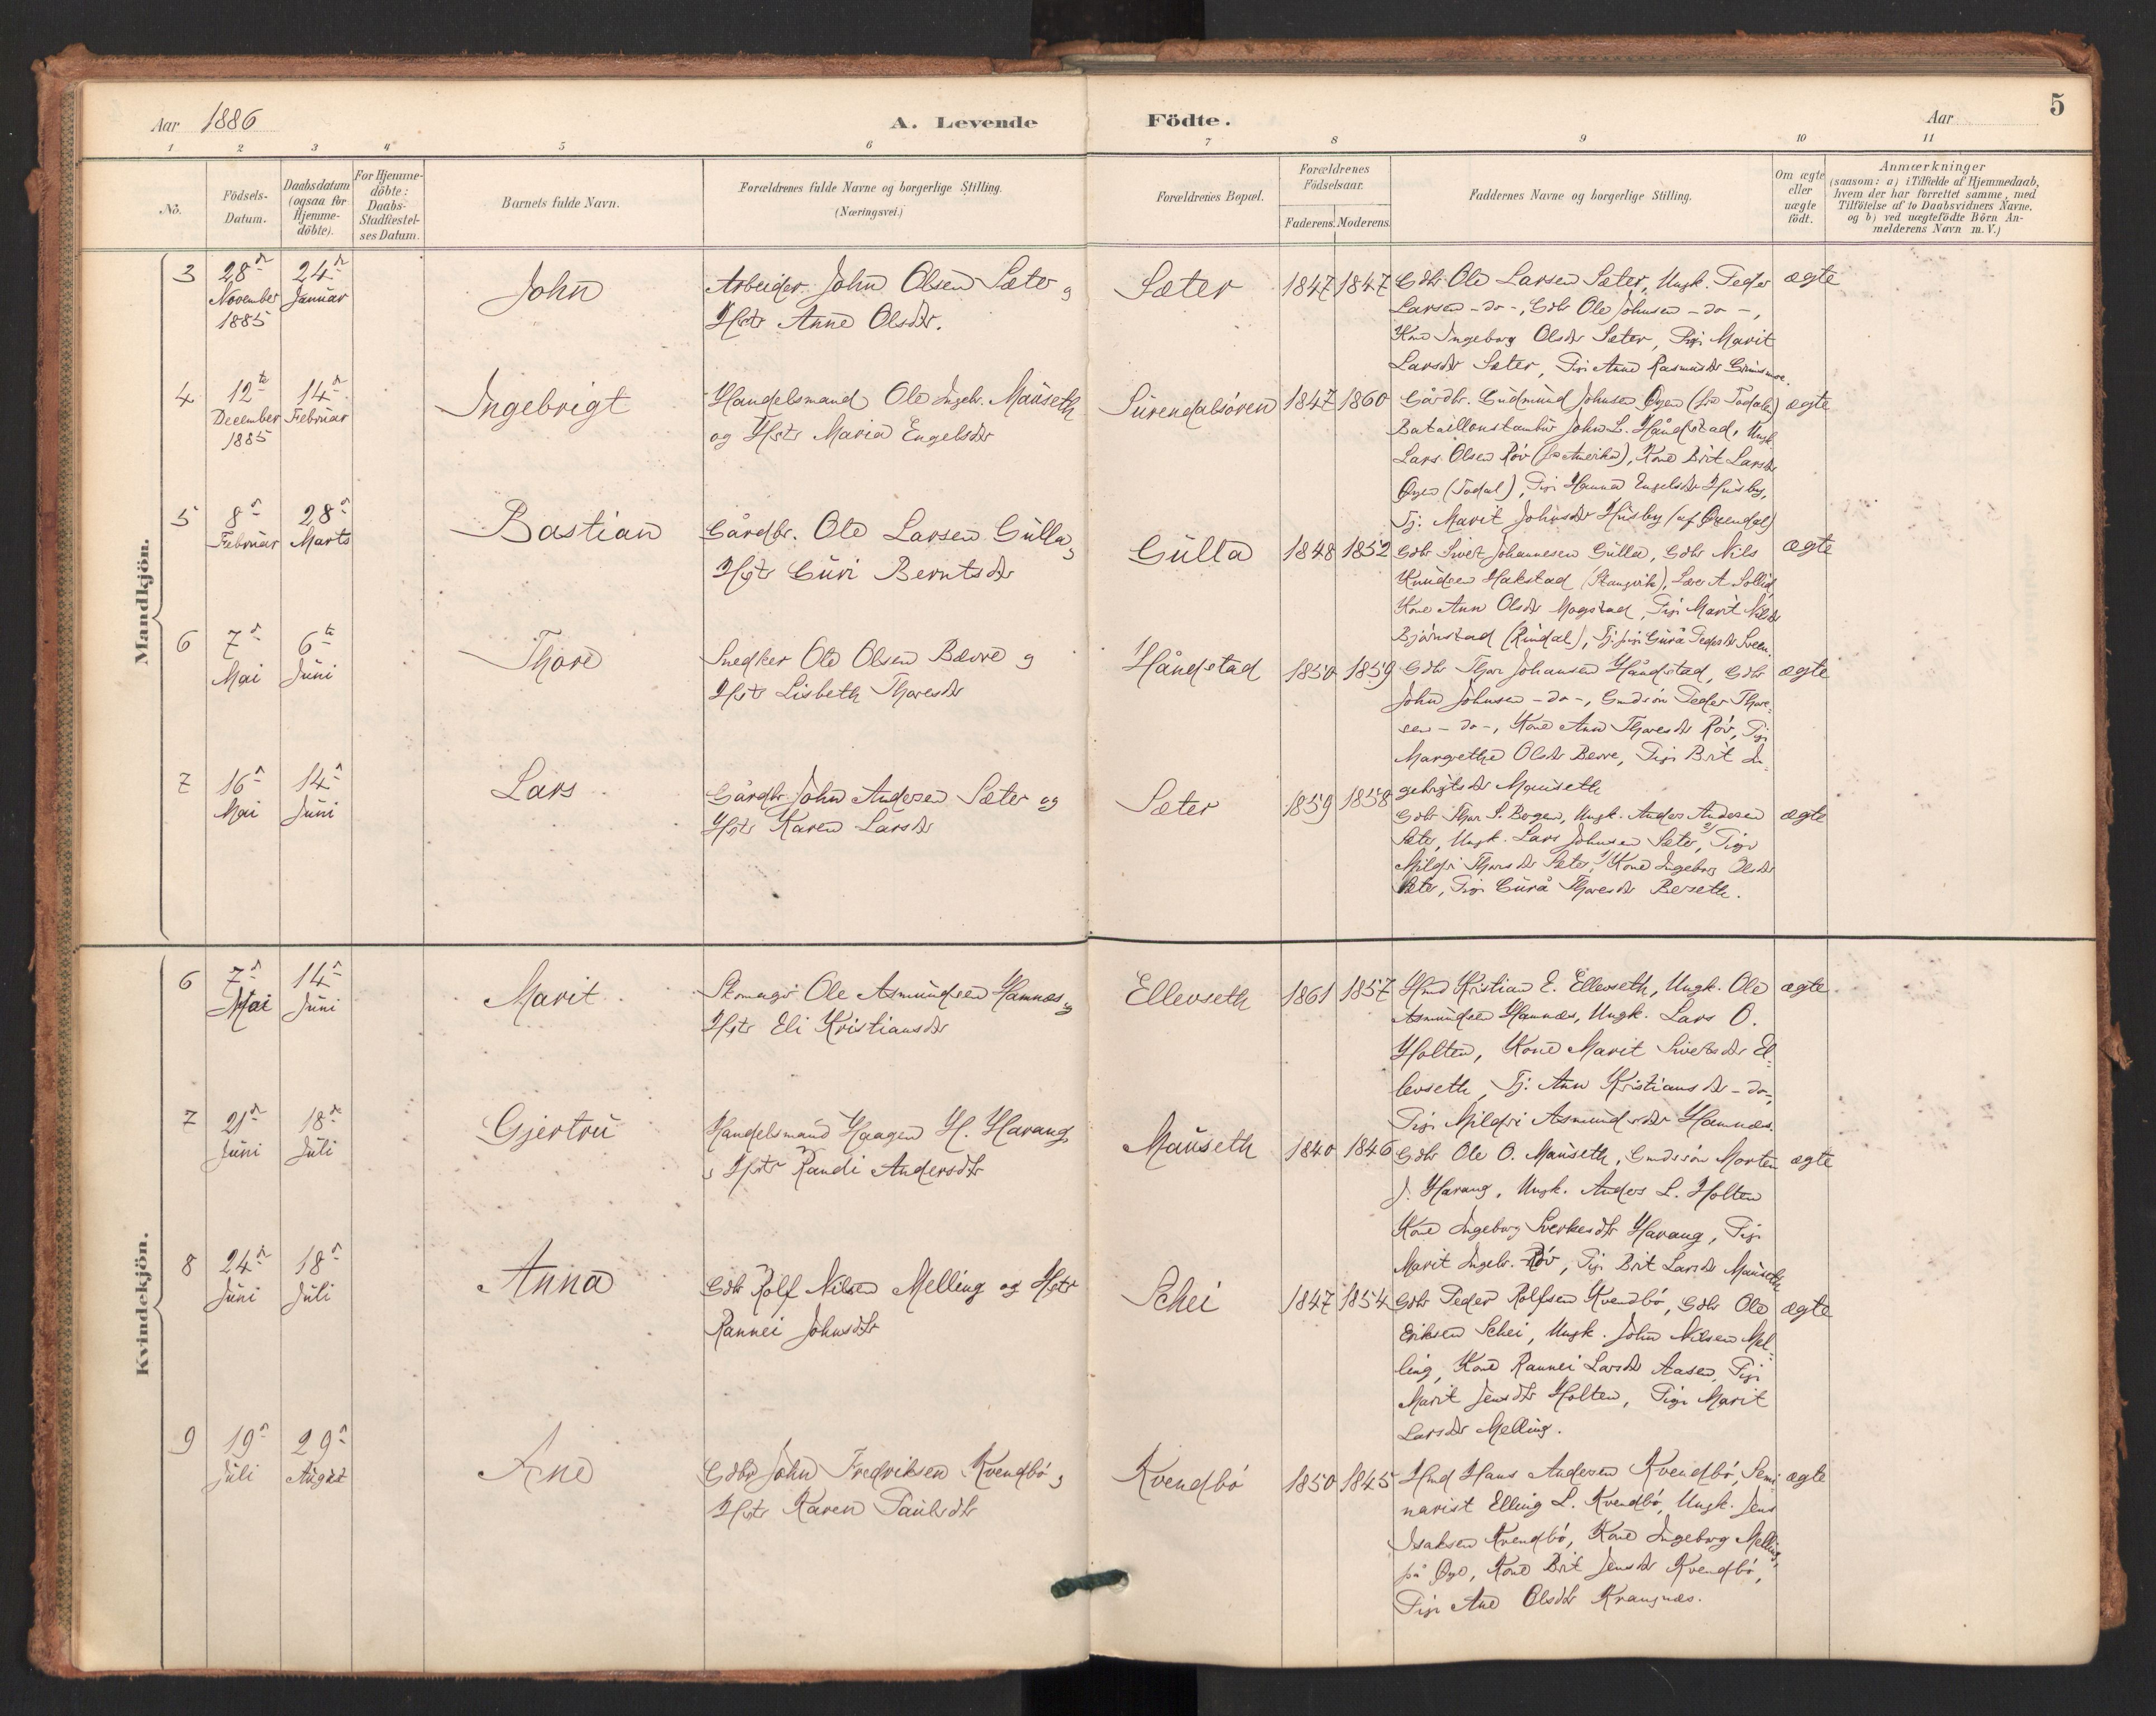 Aar 1886
A. Levende
Födte.
Aar
5
1 2 3 4 5 6 7 8 9 10 11
No.
Födsels-
Datum.
Daabsdatum
(ogsaa for
Hjemme-
döbte).
For Hjemme-
döbte:
Daabs-
Stadfæstel-
ses Datum.
Barnets fulde Navn.
Forældrenes fulde Navne og borgerlige Stilling.
(Næringsvei.)
Forældrenes Bopæl.
Forældrenes
Födselsaar.
Faderens. Moderens.
Faddernes Navne og borgerlige Stilling.
Om ægte
eller
uægte
födt.
Anmærkninger
(saasom: a) i Tilfælde af Hjemmedaab,
hvem der har forrettet samme, med
Tilföielse af to Daabsvidners Navne,
og b) ved uægtefödte Börn An-
melderens Navn m. V.)
Mandkjön.
3
28de
November
1885
24de
Januar
John
Arbeider John Olsen Sæter og
Hstr Anne Olsdtr.
Sæter
1847 1847
Gdbr Ole Larsen Sæter, Ungk. Peder
Larsen -do-, Gdbr Ole Johnsen -do-,
Kone Ingeborg Olsdtr Sæter, Pige Marit
Larsdtr Sæter, Pige Anne Rasmusdtr
ægte
4
12te
December
1885
14de
Februar
Ingebrigt
Handelsmand Ole Ingebr. Mauseth
og Hstr Maria Engelsdtr
Surendalsören
1847 1860
Gårdbr. Gudmund Johnsen Öyen (fra Todalen)
Bataillonstambur John L. Håndstad, Ungk.
Lars Olsen Röv (fra Amerika), Kone Brit Larsdtr
Öyen (Todal), Pige Hanna Engelsdtr Husby,
Tj. Marit Johnsdtr Husby (af Öxendal)
ægte
5
8de
Februar
28de
Marts
Bastian
Gårdbr. Ole Larsen Gulla
Hstr Guri Berntsdtr
Gulla
1848 1852
Gdbr Sivert Johannesen Gulla, Gdbr Nils
Knudsen Hakstad (Stangvik), Lærer A Sollid
Kone Ann Olsdtr Mogstad, Pige Marit Nilsdtr
Bjørnstad (Rindal), Tj. pige Gurå Pedersdtr Sveen.
ægte
6
7de
Mai
6te
Juni
Thore
Snedker Ole Olsen Bævre og
Hstr Lisbeth Thoresdtr
Håndstad
1850 1859
Gdbr Thore Johansen Håndstad, Gdbr
John Johnsen -do-, Gmdsön Peder Thore-
sen -do-, Kone Ann Thoresdtr Röv, Pige
Margrethe Olsdtr Bævre, Pige Brit In-
gebrigtsdtr Mauseth
ægte
7
16de
Mai
14de
Juni
Lars
Gårdbr. John Andersen Sæter og
Hstr Karen Larsdtr
Sæter
1859 1858
Gdbr Thore S. Bergen, Ungk. Anders Andersen
Sæter, Ungk. Lars Johnsen Sæter, 2) Pige
Mildri Thoresdtr Sæter, 1) Kone Ingeborg Olsdtr
Sæter, Pige Gurå Thoresdtr Berseth.
ægte
Kvindekjön.
6
7de
Mai
14de
Juni
Marit
Skomager Ole Asmundsen Hamnæs og
Hstr Eli Kristiansdtr
Ellevseth
1861 1857
Hmd Kristian E. Ellevseth, Ungk. Ole
Asmundsen Hamnæs, Ungk. Lars O.
Holten, Kone Marit Sivertsdtr El-
levseth, Tj. Ann Kristiansdtr -do-,
Pige Mildri Asmundsdtr Hamnæs.
ægte
7
21de
Juni
18de
Juli
Gjertru
Handelsmand Haagen H. Harang
og Hstr Randi Andersdtr
Mauseth
1840 1846
Gdbr Ole O. Mauseth, Gmdssön Morten
J. Harang, Ungk. Anders L. Holten
Kone Ingeborg Sverkesdtr Harang, Pige
Marit Ingebr. Röv, Pige Brit Larsdtr Mauseth
ægte
8
24de
Juni
18de
Juli
Anna
Gdbr Rolf Nilsen Melling og Hstr
Rannei Johnsdtr
Schei
1847 1854
Gdbr Peder Rolfsen Kvendbö, Gdbr Ole
Eriksen Schei, Ungk. John Nilsen Mel-
ling, Kone Rannei Larsdtr Aasen, Pige
Marit Jensdtr Holten, Pige Marit
Larsdtr Melling.
ægte
9
19de
Juli
29de
August
Ane
Gdbr John Fredriksen Kvendbö og
Hstr Karen Paulsdtr
Kvendbö
1850 1845
Hmd Hans Andersen Kvendbö, Semi-
narist Elling L. Kvendbö, Ungk. Jens
Isaksen Kvendbö, Kone Ingeborg Melling,
på Öye, Kone Brit Jensdtr Kvendbö,
Pige Ane Olsdtr Krangnæs.
ægte